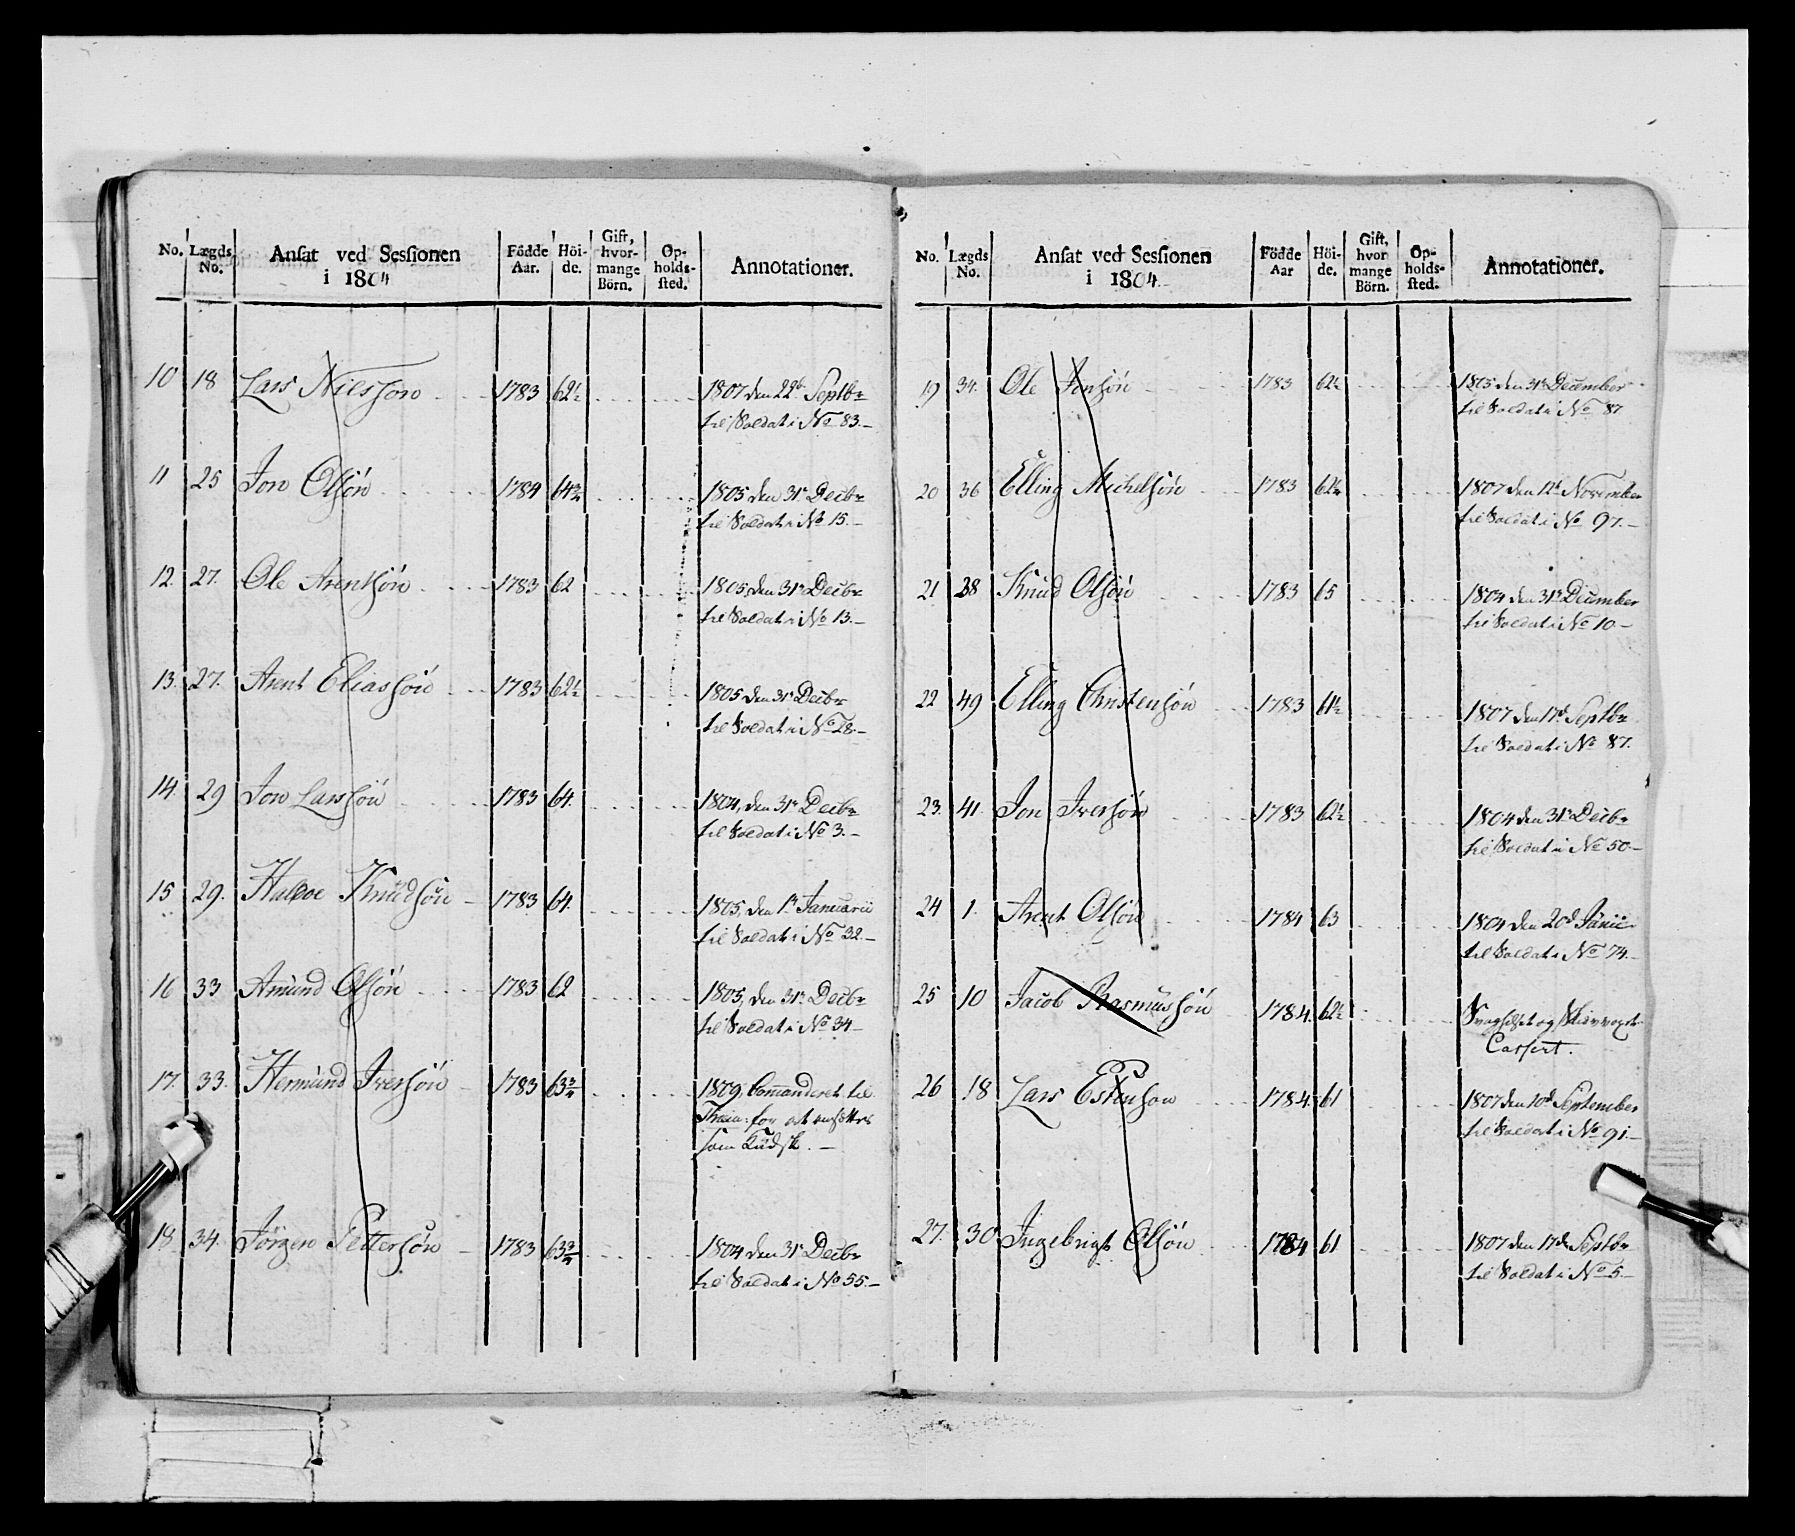 No. Lægds No. Ansat ved Sessionen i 1804 Födde Aar. Höide. Gift, hvormange Börn. Opholdssted. Annotationer.
10 18 Lars Nielssøn 1783 62½ 1807 den 22d Septbr
til Soldat i No 83.
11 25 Jon Olsøn 1784 64¾ 1805 den 31r Decbr
til Soldat i No 15.
12. 27. Ole Arentsøn 1783 62 1805, den 31r Decbr
til Soldat i No 13.
13. 27. Arent Eliassøn 1783 62½ 1805 den 31r Decbr
til Soldat i No 28.
14. 29 Jon Larssøn 1783 64. 1804, den 31r Decbr
til Soldat i No 3.
15 29. Halvor Knudsøn 1783 64. 1805, den 1r Januarii
til Soldat i No 32.
16 33 Amund Olsøn 1783 62 1805, den 31r Decbr
til Soldat i No 34
17. 33. Hermund Iversøn 1783 63¾ 1809, Comanderet til
Train: for at ansættes
som Kudsk.
18 34. Jörgen Pettersøn 1783 63¾ 1804 den 31r Decbr
til Soldat i No 55.
No. Lægds No. Ansat ved Sessionen i 1804. Födde Aar Höide. Gift, hvor mange Börn. Opholdssted. Annotationer.
19 34. Ole Jonsøn 1783 62½ 1805 den 31r December
til Soldat i No 87
20 36 Elling Michelsøn 1783 62½ 1807 den 12t November
til Soldat i No 97.
21 38 Knud Olsøn 1783 65 1804 den 31r December
til Soldat i No 10
22 49 Elling Christensøn 1783 61½ 1807 den 17d Septbr
til Soldat i No 87.
23. 41. Jon Iversøn 1783 62½ 1804 den 31r Decbr
til Soldat i No 50.
24 1. Arent Olsøn 1784 63 1804 den 20d Junii
til Soldat i No 74.
25 10 Jacob Rasmussøn 1784. 62½ Svagelset og
Cassert.
26 18 Lars Estensøn 1784. 61 1807 den 10d September
til Soldat i No 91.
27. 30 Ingebrigt Olsøn 1784 61 1807 den 17de Septbr
til Soldat i No 5